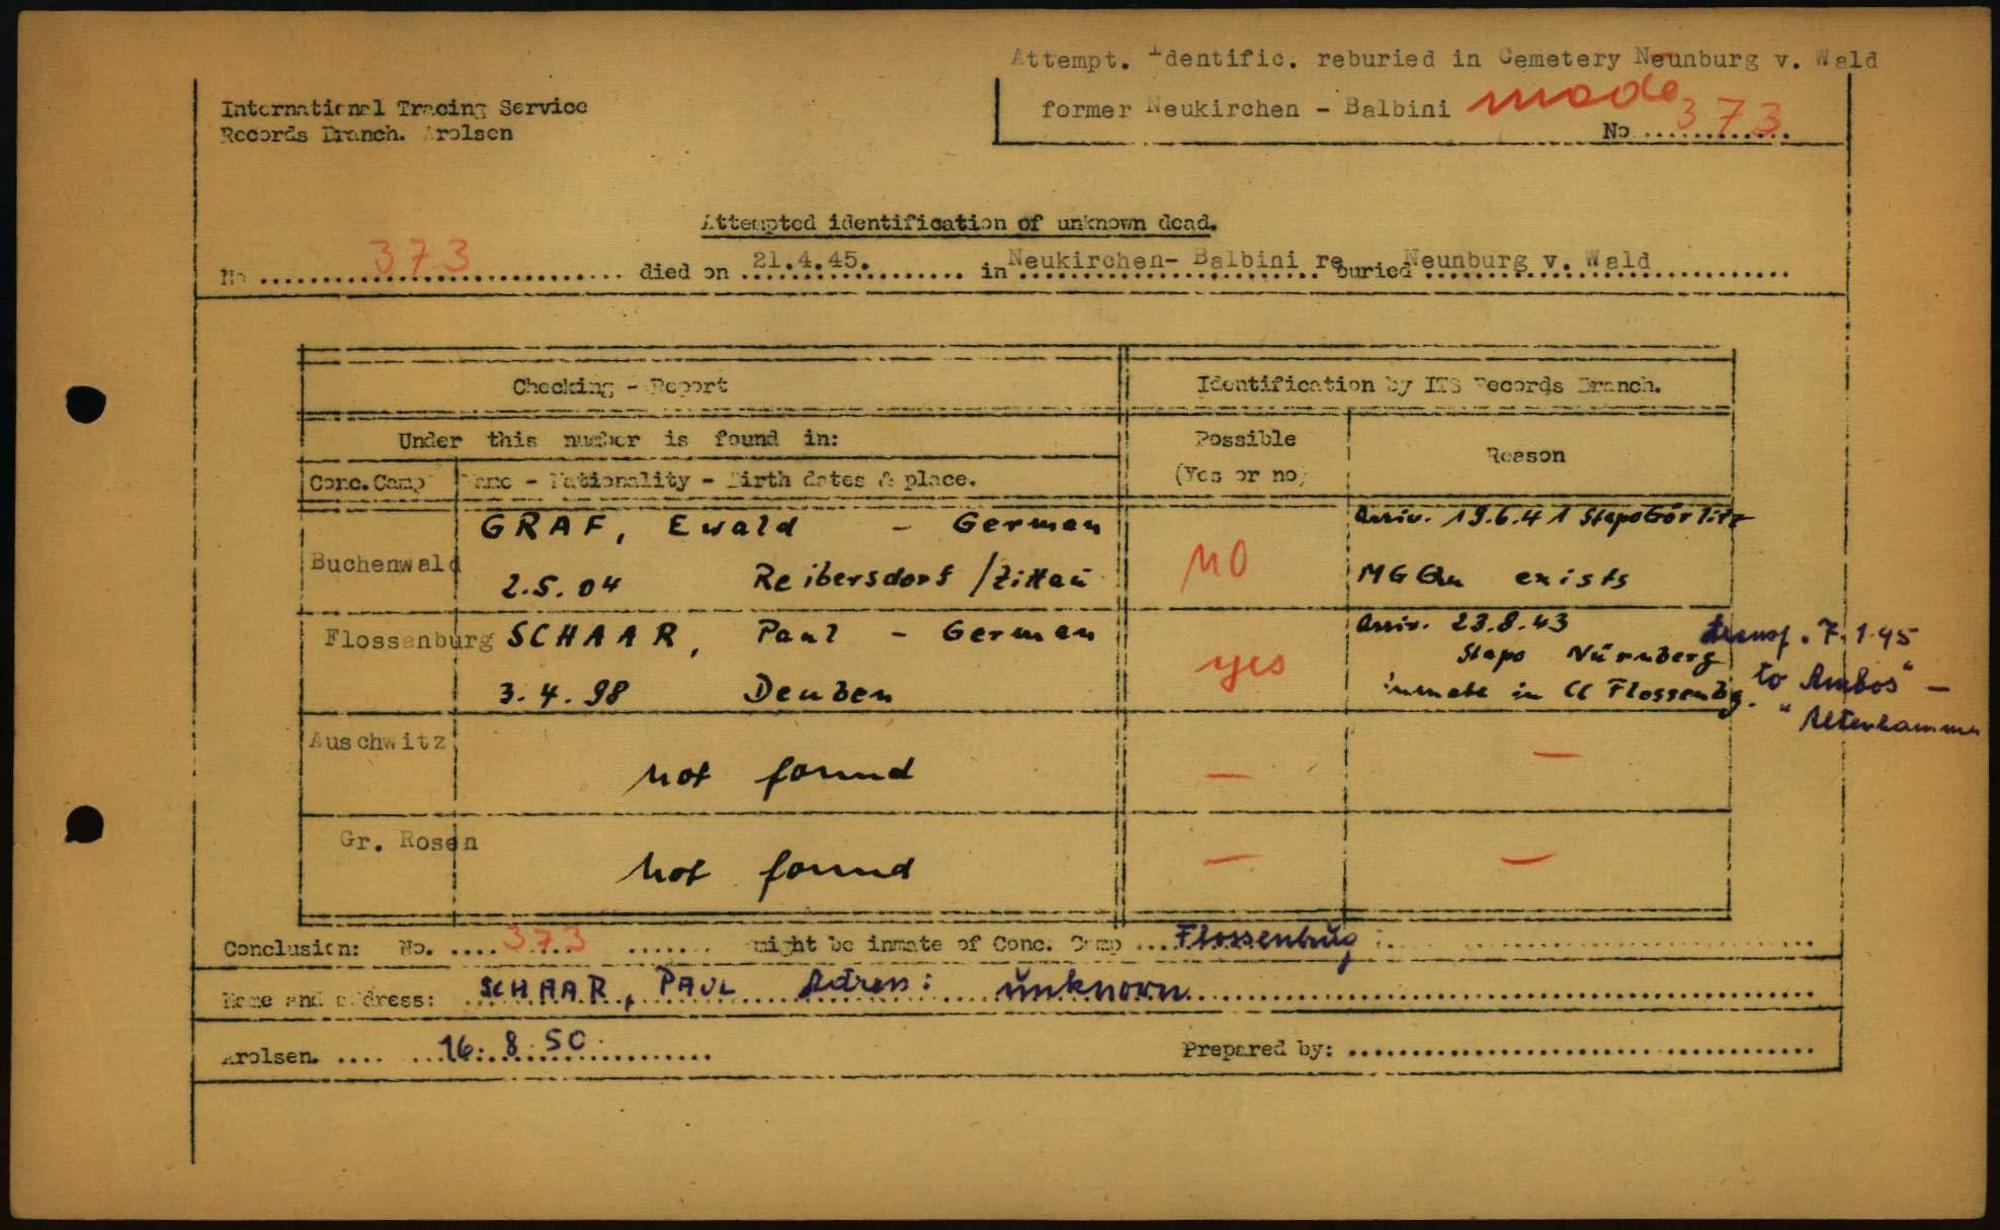 Attempt. Identific. reburied in Cemetery Neunburg v. Wald
former Neukirchen - Balbini made
No ............ 373
International Tracing Service
Records Branch. Arolsen
Attempted identification of unknown dead.
No ..... 373 ..... died on 21.4.45. in Neukirchen- Balbini re buried Neunburg v. Wald
Checking - Report
Identification by ITS Records Branch.
Under this number is found in:
Possible
(Yes or no)
Reason
Conc. Camp
Name - Nationality - Birth dates & place.
Buchenwald
GRAF, Ewald - German
2.5.04 Reibersdorf /Zittau
NO
Arriv. 19.6.41 Stapo Görlitz
exists
Flossenburg
SCHAAR, Paul - German
3.4.98 Deuben
yes
Arriv. 23.8.43
Stapo Nürnberg
inmate in CC Flossenbg.
transf. 7.1.45
to Ambos" -
"Altenhammer
Auschwitz
not found
—
—
Gr. Rosen
not found
—
—
Conclusion: No. .... 373 ....... might be inmate of Conc. Camp ... Flossenbrüg
Name and address: SCHAAR, PAUL Adress: unknown
Arolsen. .... 16. 8. 50.
Prepared by: ........